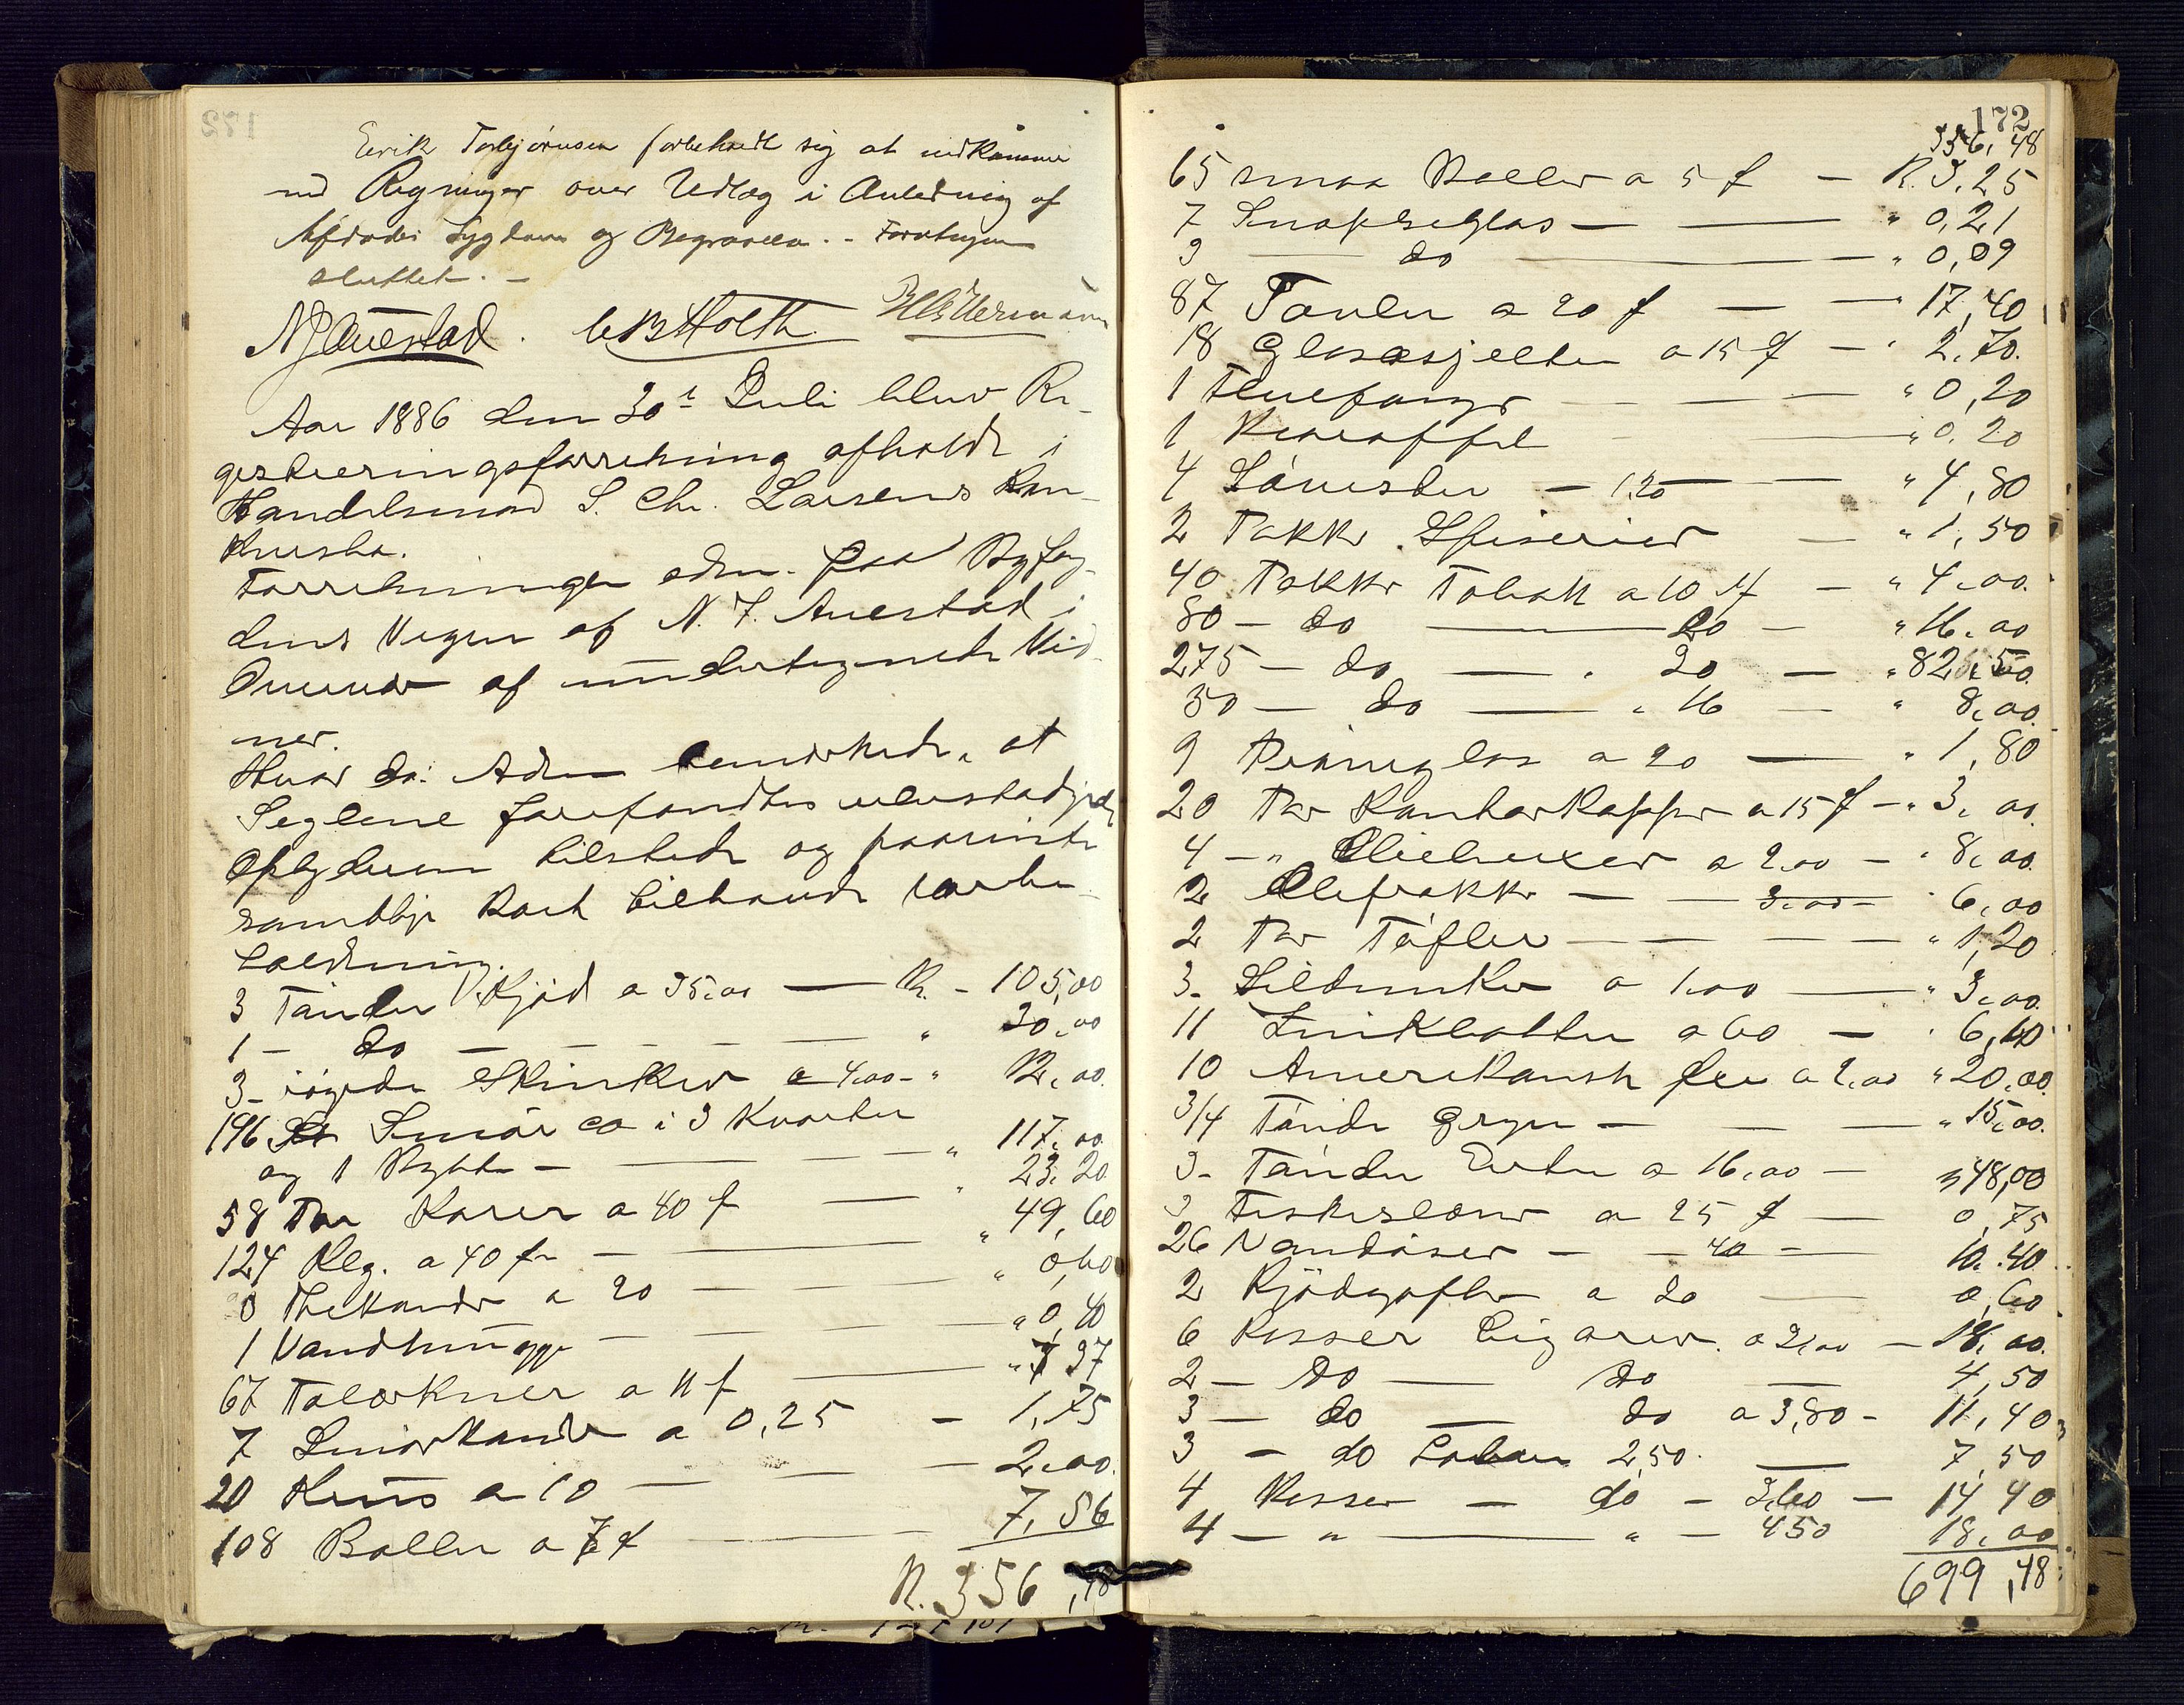 Eerik Torbjørnsen forbeholdt sig at indkomme
med Regninger over Udlæg i Anledning af
Afdødes Sygdom og Begravelse. - Forretningen
sluttet. -
N J Auestad. C B Holth.
Aar 1886 den 30t Juli blev Re-
gistreringsforretning afholdt i
Handelsmand S. Chr. Larsens Kon-
kursbo.
Forretningen adm. paa Byfog-
dens Vegne af N. J. Auestad i
Overvær af undertegnede Vid-
ner.
Hvor da: Adm bemærkede, at
Seglene forefandtes ubeskadigede
Opbyderen tilstede og paaviste
samtlige Boet tilhørende
3 Tønder Kjød a 35,00 — Kr. - 105,00
1 - do - - - - " 30,00
3 - røgede Skinker a 4,00 - " 12,00
196 Smør ca i 3 Kvarter
og 1 Bytte - — — " 117,00
58 Par Karer a 40 f — " 23,20
124 Klg. a 40 f - — " 49,60
3 Thekander a 20 — — " 0,60
1 Vandmugge — — " 0,40
67 Talærkner a 11 f — " 7,37
7 Smørkander a 0,25 - 1,75
20 Krus a 10 — — 2,00
108 Boller a 7 f — 7,56
K. 356,48
172
356,48
65 smaa Boller a 5 f — K. 3,25
7 Snapseglas — — " 0,21
3 — do — " 0,09
87 Tavler a 20 f — — " 17,40
18 Glasasjetter a 15 f — " 2,70
1 Fluefanger — — — " 0,20
1 Karaffel — " 0,20
4 — 1,20 — " 4,80
2 Pakker Spiserier — " 1,50
40 Pakker Tobak a 10 f — " 4,00
80 — do — 20 — " 16,00
275 — do — " 30 — " 82,50
50 — do — " 16 — " 8,00
9 Prøveglas a 20 — " 1,80
20 Par Kanterkapper a 15 f — " 3,00
4 — " Oliebuxer a 2,00 — " 8,00
2 Oliefrakker — — 3,00 - " 6,00
2 Par Tøfler — — — " 1,20
3 - a 1,00 — " 3,00
11 a 60 — " 6,60
10 Amerikansk a 2,00 " 20,00
3/4 Tønde Gryn — — " 15,00
3 - Tønder Erter a 16,00 — " 48,00
3 a 25 f — 0,75
26 Vandøser — — 40 — 10,40
2 Kjødgafler a 30 — 0,60
6 Kasser Cigarer a 3,00 — 18,00
2 — do — do — 4,50
3 — do — do a 3,80 - 11,40
3 — do 2,50 — 7,50
4 Kasser — do — 3,60 — 14,40
4 — " — " — 4,50 18,00
699,48